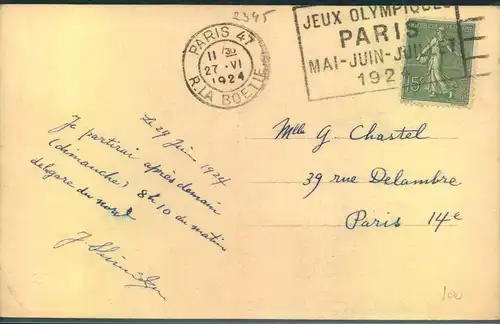 2345
PARIS 47
11 30
27 · VI
1924
R. LA BOETIE
JEUX OLYMPIQUES
PARIS
MAI-JUIN-JUILLET
1924
15c
Le 27 Juin 1924
Je partirai après demain
(dimanche) 8h 10 du matin
de gare du nord
J
Mlle G. Chastel
39 rue Delambre
Paris 14e
100